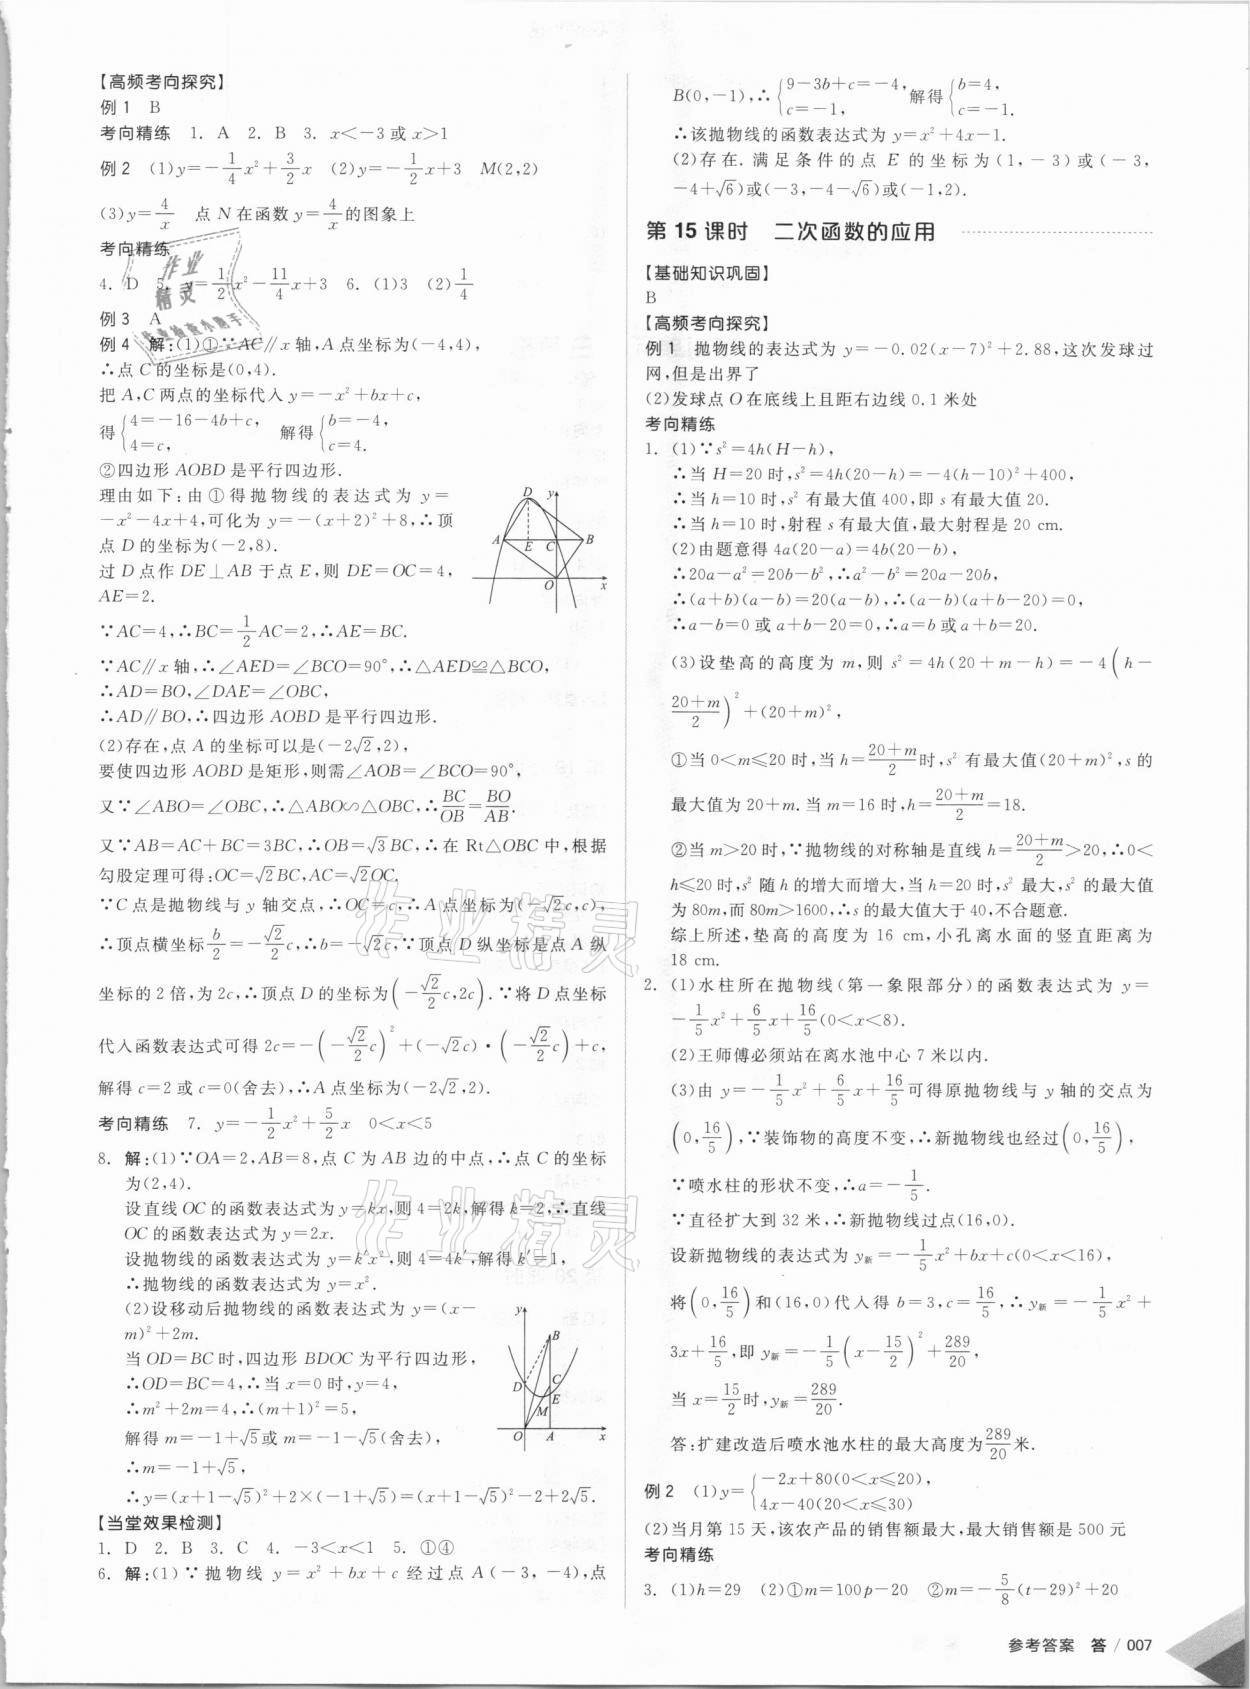 【高频考向探究】
例1 B
考向精练 1. A 2. B 3. x<-3或x>1
例2 (1)y=-1/4x²+3/2x (2)y=-1/2x+3 M(2,2)
(3)y=4/x 点N在函数y=4/x的图象上
考向精练
4. D 5. y=1/2x²-11/4x+3 6. (1)3 (2)1/4
例3 A
例4 解:(1)①∵AC∥x轴,A点坐标为(-4,4),
∴点C的坐标是(0,4).
把A,C两点的坐标代入y=-x²+bx+c,
得{4=-16-4b+c, 4=c, 解得{b=-4, c=4.
②四边形AOBD是平行四边形.
理由如下:由①得抛物线的表达式为y=
-x²-4x+4,可化为y=-(x+2)²+8,∴顶
点D的坐标为(-2,8).
过D点作DE⊥AB于点E,则DE=OC=4,
AE=2.
∵AC=4,∴BC=1/2AC=2,∴AE=BC.
∵AC∥x轴,∴∠AED=∠BCO=90°,∴△AED≌△BCO,
∴AD=BO,∠DAE=∠OBC,
∴AD∥BO,∴四边形AOBD是平行四边形.
(2)存在,点A的坐标可以是(-2√2,2),
要使四边形AOBD是矩形,则需∠AOB=∠BCO=90°,
又∵∠ABO=∠OBC,∴△ABO∽△OBC,∴BC/OB=BO/AB.
又∵AB=AC+BC=3BC,∴OB=√3BC,∴在Rt△OBC中,根据
勾股定理可得:OC=√2BC,AC=√2OC.
∵C点是抛物线与y轴交点,∴OC=c,∴A点坐标为(-√2c,c),
∴顶点横坐标b/2=-√2/2c,∴b=-√2c,∵顶点D纵坐标是点A纵
坐标的2倍,为2c,∴顶点D的坐标为(-√2/2c,2c).∵将D点坐标
代入函数表达式可得2c=-(-√2/2c)²+(-√2c)·(-√2/2c)+c,
解得c=2或c=0(舍去),∴A点坐标为(-2√2,2).
考向精练 7. y=-1/2x²+5/2x 0<x<5
8. 解:(1)∵OA=2,AB=8,点C为AB边的中点,∴点C的坐标
为(2,4).
设直线OC的函数表达式为y=kx,则4=2k,解得k=2,∴直线
OC的函数表达式为y=2x.
设抛物线的函数表达式为y=k′x²,则4=4k′,解得k′=1,
∴抛物线的函数表达式为y=x².
(2)设移动后抛物线的函数表达式为y=(x-
m)²+2m.
当OD=BC时,四边形BDOC为平行四边形,
∴OD=BC=4,∴当x=0时,y=4,
∴m²+2m=4,∴(m+1)²=5,
解得m=-1+√5或m=-1-√5(舍去),
∴m=-1+√5,
∴y=(x+1-√5)²+2×(-1+√5)=(x+1-√5)²-2+2√5.
【当堂效果检测】
1. D 2. B 3. C 4. -3<x<1 5. ①④
6. 解:(1)∵抛物线y=x²+bx+c经过点A(-3,-4),点
B(0,-1),∴{9-3b+c=-4, c=-1, 解得{b=4, c=-1.
∴该抛物线的函数表达式为y=x²+4x-1.
(2)存在.满足条件的点E的坐标为(1,-3)或(-3,
-4+√6)或(-3,-4-√6)或(-1,2).
第15课时 二次函数的应用
【基础知识巩固】
B
【高频考向探究】
例1 抛物线的表达式为y=-0.02(x-7)²+2.88,这次发球过
网,但是出界了
(2)发球点O在底线上且距右边线0.1米处
考向精练
1. (1)∵s²=4h(H-h),
∴当H=20时,s²=4h(20-h)=-4(h-10)²+400,
∴当h=10时,s²有最大值400,即s有最大值20.
∴当h=10时,射程s有最大值,最大射程是20 cm.
(2)由题意得4a(20-a)=4b(20-b),
∴20a-a²=20b-b²,∴a²-b²=20a-20b,
∴(a+b)(a-b)=20(a-b),∴(a-b)(a+b-20)=0,
∴a-b=0或a+b-20=0,∴a=b或a+b=20.
(3)设垫高的高度为m,则s²=4h(20+m-h)=-4(h-
20+m/2)²+(20+m)²,
①当0<m≤20时,当h=20+m/2时,s²有最大值(20+m)²,s的
最大值为20+m.当m=16时,h=20+m/2=18.
②当m>20时,∵抛物线的对称轴是直线h=20+m/2>20,∴0<
h≤20时,s²随h的增大而增大,当h=20时,s²最大,s²的最大值
为80m,而80m>1600,∴s的最大值大于40,不合题意.
综上所述,垫高的高度为16 cm,小孔离水面的竖直距离为
18 cm.
2. (1)水柱所在抛物线(第一象限部分)的函数表达式为y=
-1/5x²+6/5x+16/5(0<x<8).
(2)王师傅必须站在离水池中心7米以内.
(3)由y=-1/5x²+6/5x+16/5可得原抛物线与y轴的交点为
(0,16/5),∵装饰物的高度不变,∴新抛物线也经过(0,16/5),
∵喷水柱的形状不变,∴a=-1/5.
∵直径扩大到32米,∴新抛物线过点(16,0).
设新抛物线的表达式为y新=-1/5x²+bx+c(0<x<16),
将(0,16/5)和(16,0)代入得b=3,c=16/5,∴y新=-1/5x²+
3x+16/5,即y新=-1/5(x-15/2)²+289/20,
当x=15/2时,y新=289/20.
答:扩建改造后喷水池水柱的最大高度为289/20米.
例2 (1)y={-2x+80(0<x≤20), 4x-40(20<x≤30)
(2)当月第15天,该农产品的销售额最大,最大销售额是500元
考向精练
3. (1)h=29 (2)①m=100p-20 ②m=-5/8(t-29)²+20
参考答案 答 / 007